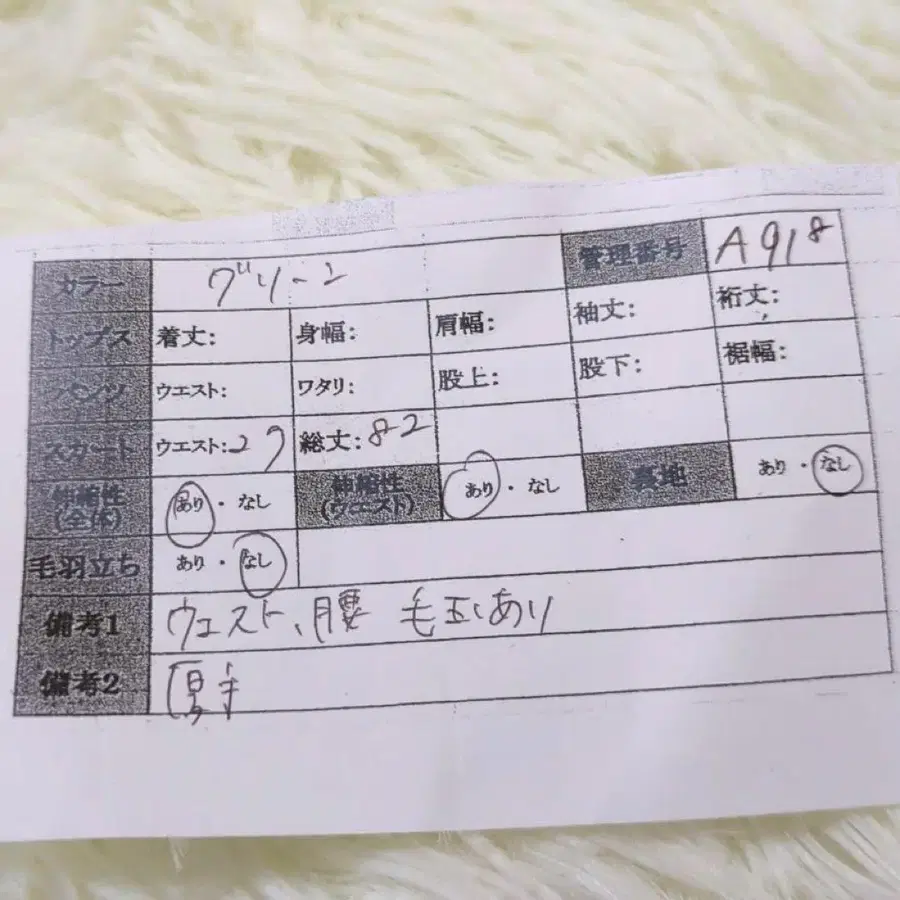 カラー グリーン 管理番号 A918
トップス 着丈: 身幅: 肩幅: 袖丈: 裄丈:
パンツ ウエスト: ワタリ: 股上: 股下: 裾幅:
スカート ウエスト:27 総丈:82
伸縮性(全体) あり・なし 伸縮性(ウエスト) あり・なし 裏地 あり・なし
毛羽立ち あり・なし
備考1 ウエスト、腰 毛玉あり
備考2 厚手